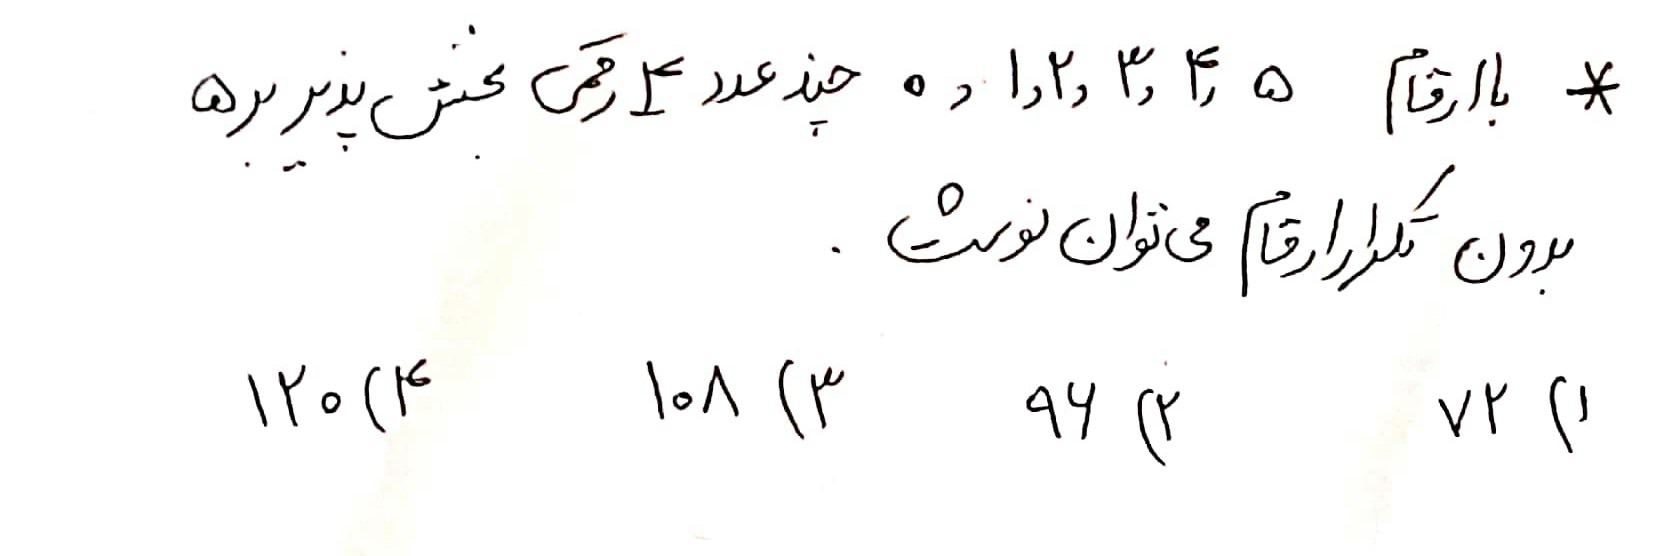 * با ارقام ۵ و ۴ و ۳ و ۲ و ۱ و ۰ چند عدد ۴ رقمی بخش پذیر بر ۵
بدون تکرار ارقام می توان نوشت .
۱) ۷۲ ۲) ۹۶ ۳) ۱۰۸ ۴) ۱۲۰